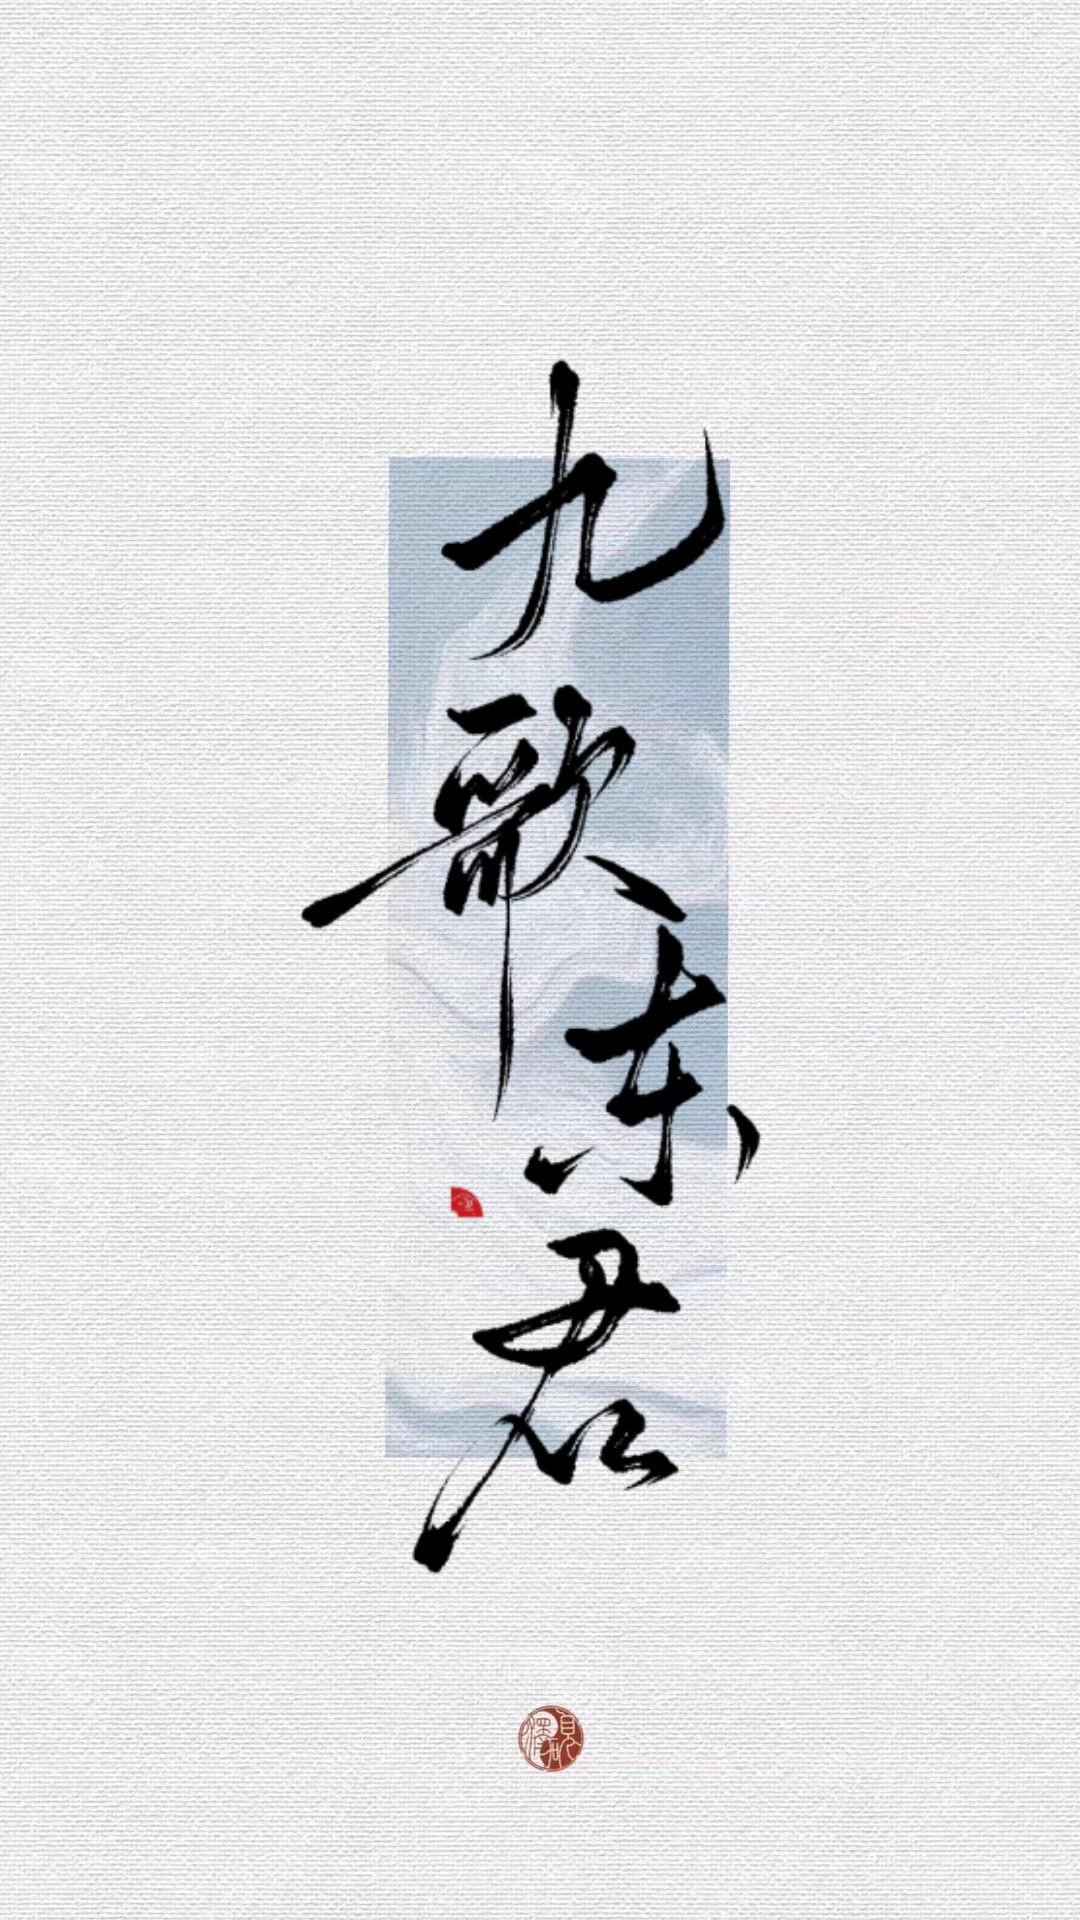 九歌东君